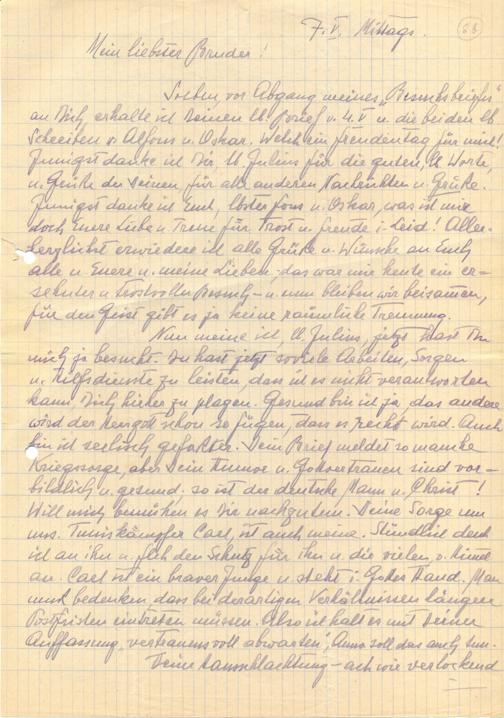 7. V. Mittags. 68
Mein liebster Bruder!
Soeben, vor Abgang meines „Besuchsbriefes"
an Dich, erhalte ich Deinen lb. Brief v. 4. V u. die beiden lb
Schreiben v. Alfons u. Oskar. Welch ein Freudentag für mich!
Innigst danke ich Dir lb Julius für die guten, lb Worte,
u. Grüße der Deinen, für alle anderen Nachrichten u. Grüße.
Innigst danke ich Euch, lbster Fons u. Oskar, was ist mir
doch Euere Liebe u. Treue für Trost u. Freude i. Leid! Aller-
herzlichst erwiedere ich alle Grüße u. Wünsche an Euch
alle u. Euere u. meine Lieben, das war mir heute ein er-
sehnter u. trostvoller Besuch – u. nun bleiben wir beisammen,
für den Geist gibt es ja keine räumliche Trennung.
Nun meine ich, lb. Julius, jetzt hast Du
mich ja besucht. Du hast jetzt soviele Arbeiten, Sorgen
u. Hilfsdienste zu leisten, dass ich es nicht verantworten
kann, Dich hieher zu plagen. Gesund bin ich ja, das andere
wird der Herrgott schon so fügen, dass es recht wird. Auch
bin ich seelisch gefasster. Dein Brief meldet so manche
Kriegssorge, aber Dein Humor u. Gottvertrauen sind vor-
bildlich u. gesund. so ist der deutsche Mann u. Christ!
Will mich bemühen es Dir nachzutun. Deine Sorge um
uns. Tuniskämpfer Carl, ist auch meine. Stündlich denk
ich an ihn u. fleh den Schutz für ihn u. die vielen v. Himmel
an. Carl ist ein braver Junge u. steht i. Gottes Hand. Man
muss bedenken dass bei derartigen Verhältnissen längere
Postfristen eintreten müssen. Also ich halt es mit Deiner
Auffassung „vertrauensvoll abwarten", Anna soll das auch tun.
Deine – ach wie verlockend